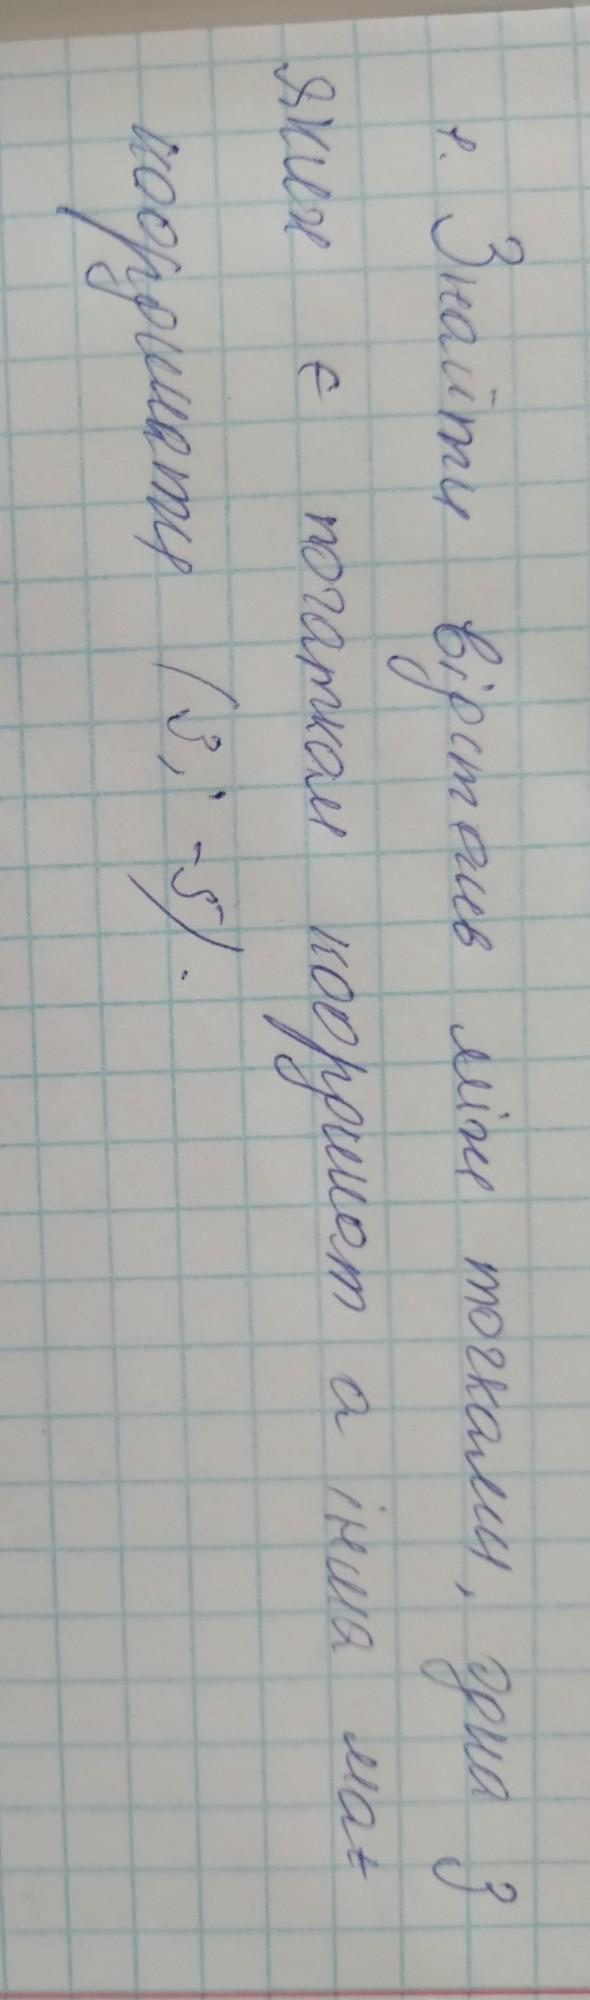 1. Знайти відстань між точками, одна з
яких є початком координат а інша має
координати (3; -5).